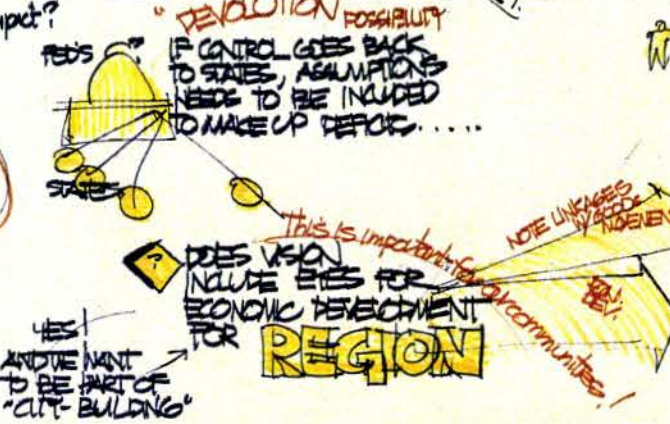 mpact?
"DEVOLUTION POSSIBILITY
FED'S
?
IF CONTROL GOES BACK
TO STATES, ASSUMPTIONS
NEEDS TO BE INCLUDED
TO MAKE UP DEFICITS.....
STATES
This is important for our communities!
NOTE LINKAGES
W/GOODS
MOVEMEN
?
DOES VISION
INCLUDE EYES FOR
ECONOMIC DEVELOPMENT
FOR
REGION
DEV.
YES!
AND WE WANT
TO BE PART OF
"CITY-BUILDING"